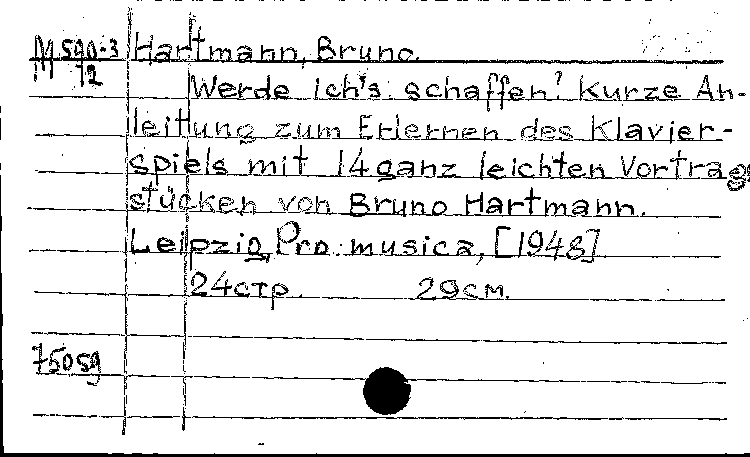 M 590-3 Hartmann, Bruno.
72 Werde ich's schaffen? Kurze An-
leitung zum Erlernen des Klavier-
spiels mit 14 ganz leichten Vortrags
stücken von Bruno Hartmann.
Leipzig, Pro musica, [1948]
24 стр. 29 см.
75059